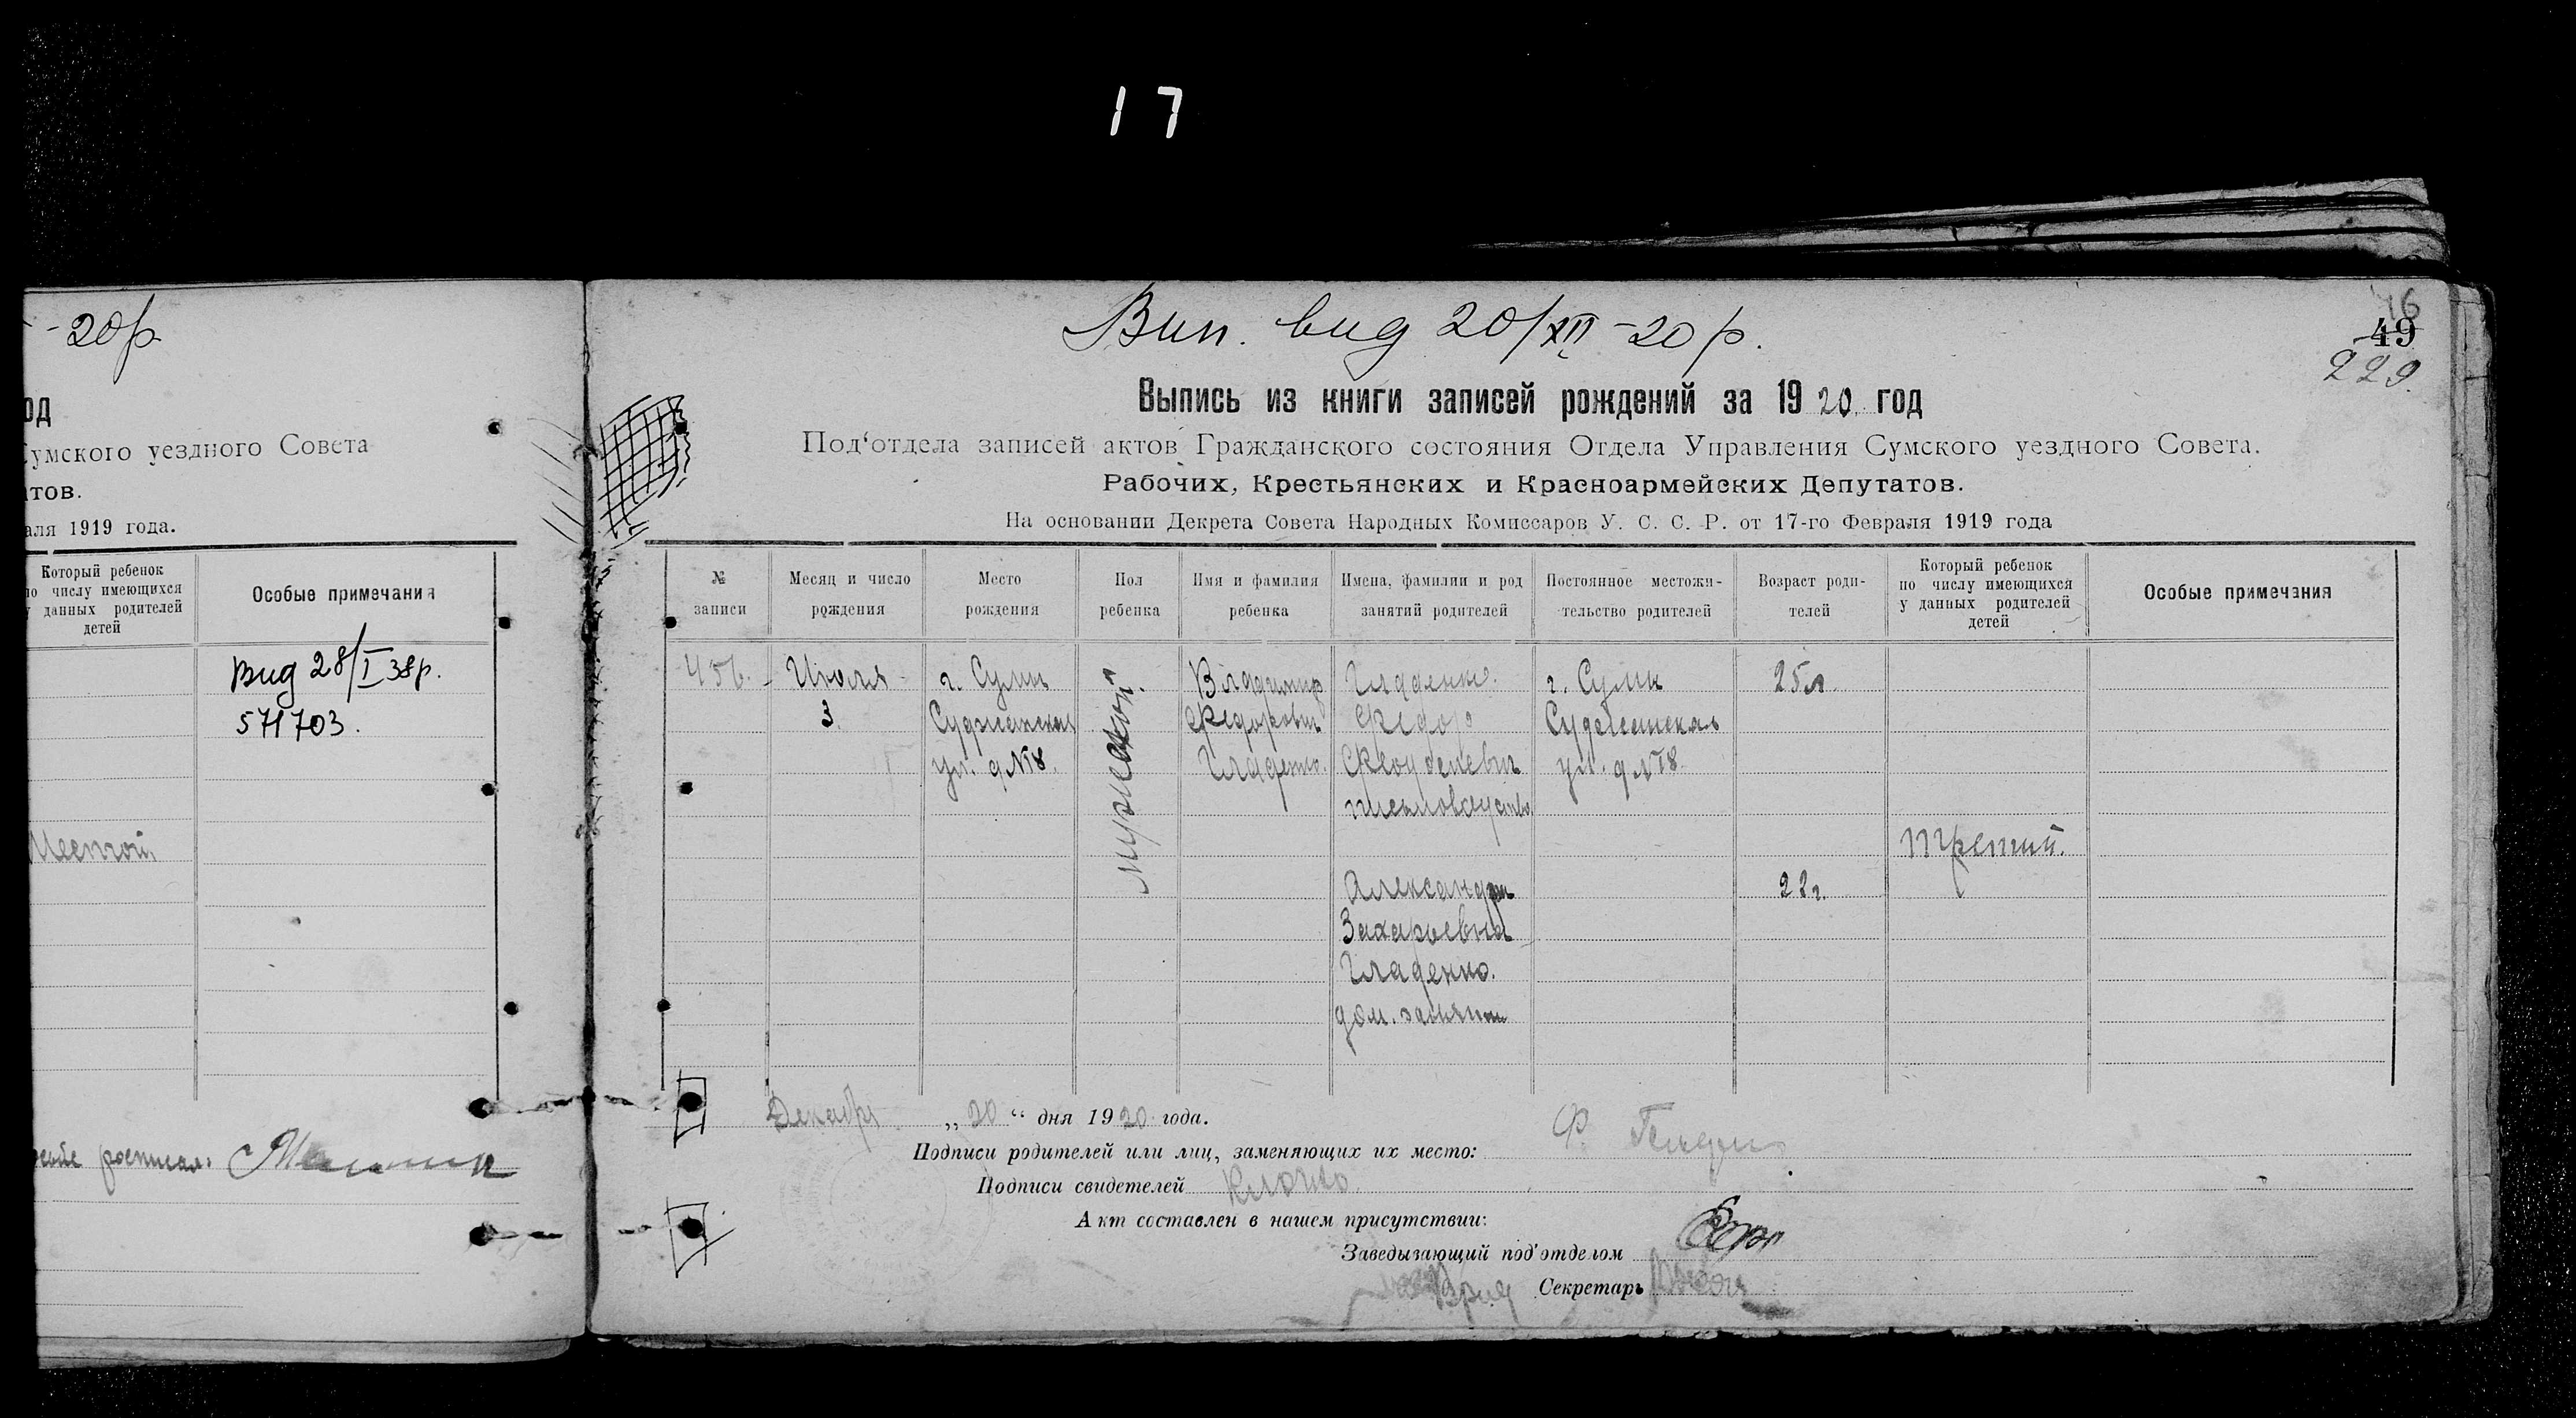 17
-20р
од
Сумского уездного Совета
тов.
аля 1919 года.
Который ребенок
по числу имеющихся
у данных родителей
детей
Особые примечания
Вид 28/I 38р.
571703.
росписал.
Вип. вид 20/XII -20 р.
16
49
229.
Выпись из книги записей рождений за 1920 год
Под‘отдела записей актов Гражданского состояния Отдела Управления Сумского уездного Совета.
Рабочих, Крестьянских и Красноармейских Депутатов.
На основании Декрета Совета Народных Комиссаров У. С. С. Р. от 17-го Февраля 1919 года
№
записи
Месяц и число
рождения
Место
рождения
Пол
ребенка
Имя и фамилия
ребенка
Имена, фамилии и род
занятий родителей
Постоянное местожи-
тельство родителей
Возраст роди-
телей
Который ребенок
по числу имеющихся
у данных родителей
детей
Особые примечания
456.
Июля
3.
г. Сумы
Суджанская
ул. д №18.
мужской.
Владимир
Федорович
Гладенко.
Гладенко.
Федор
письмоводство
Александра
Захарьевна
Гладенко.
дом. занятия
г. Сумы
Суджанская
ул. д №18.
25 л.
22 г.
третий.
Декабря „20“ дня 1920 года.
Подписи родителей или лиц, заменяющих их место: Ф.
Подписи свидетелей Клочко
Акт составлен в нашем присутствии:
Заведызающий под'отделом
Врид Секретарь